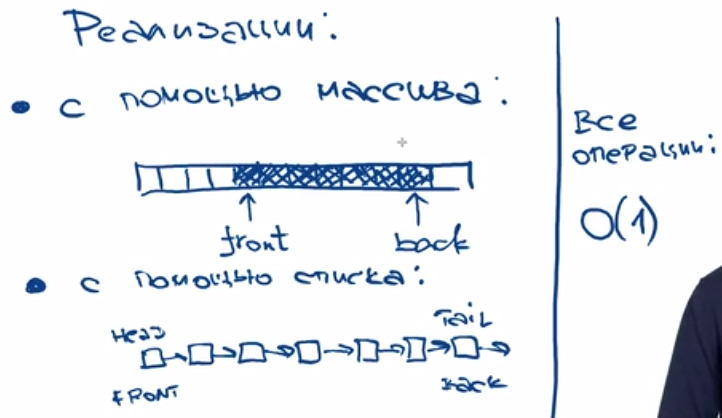 Реализации:
• с помощью массива:
front
back
• с помощью списка:
Head
Tail
FRONT
Back
Все
операции:
O(1)